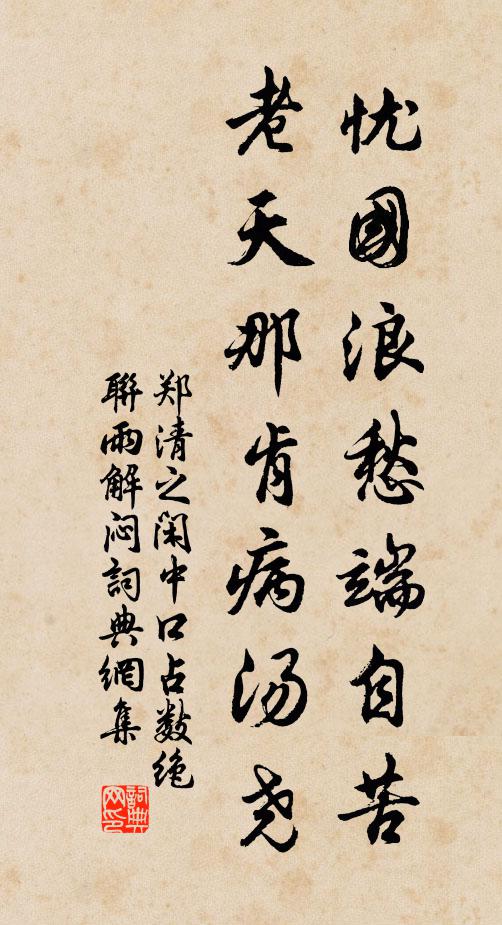 忧國浪愁端自苦
老天那肯病汤尧
郑清之闲中口占数绝
聯雨解闷詞典網集
詞典网印